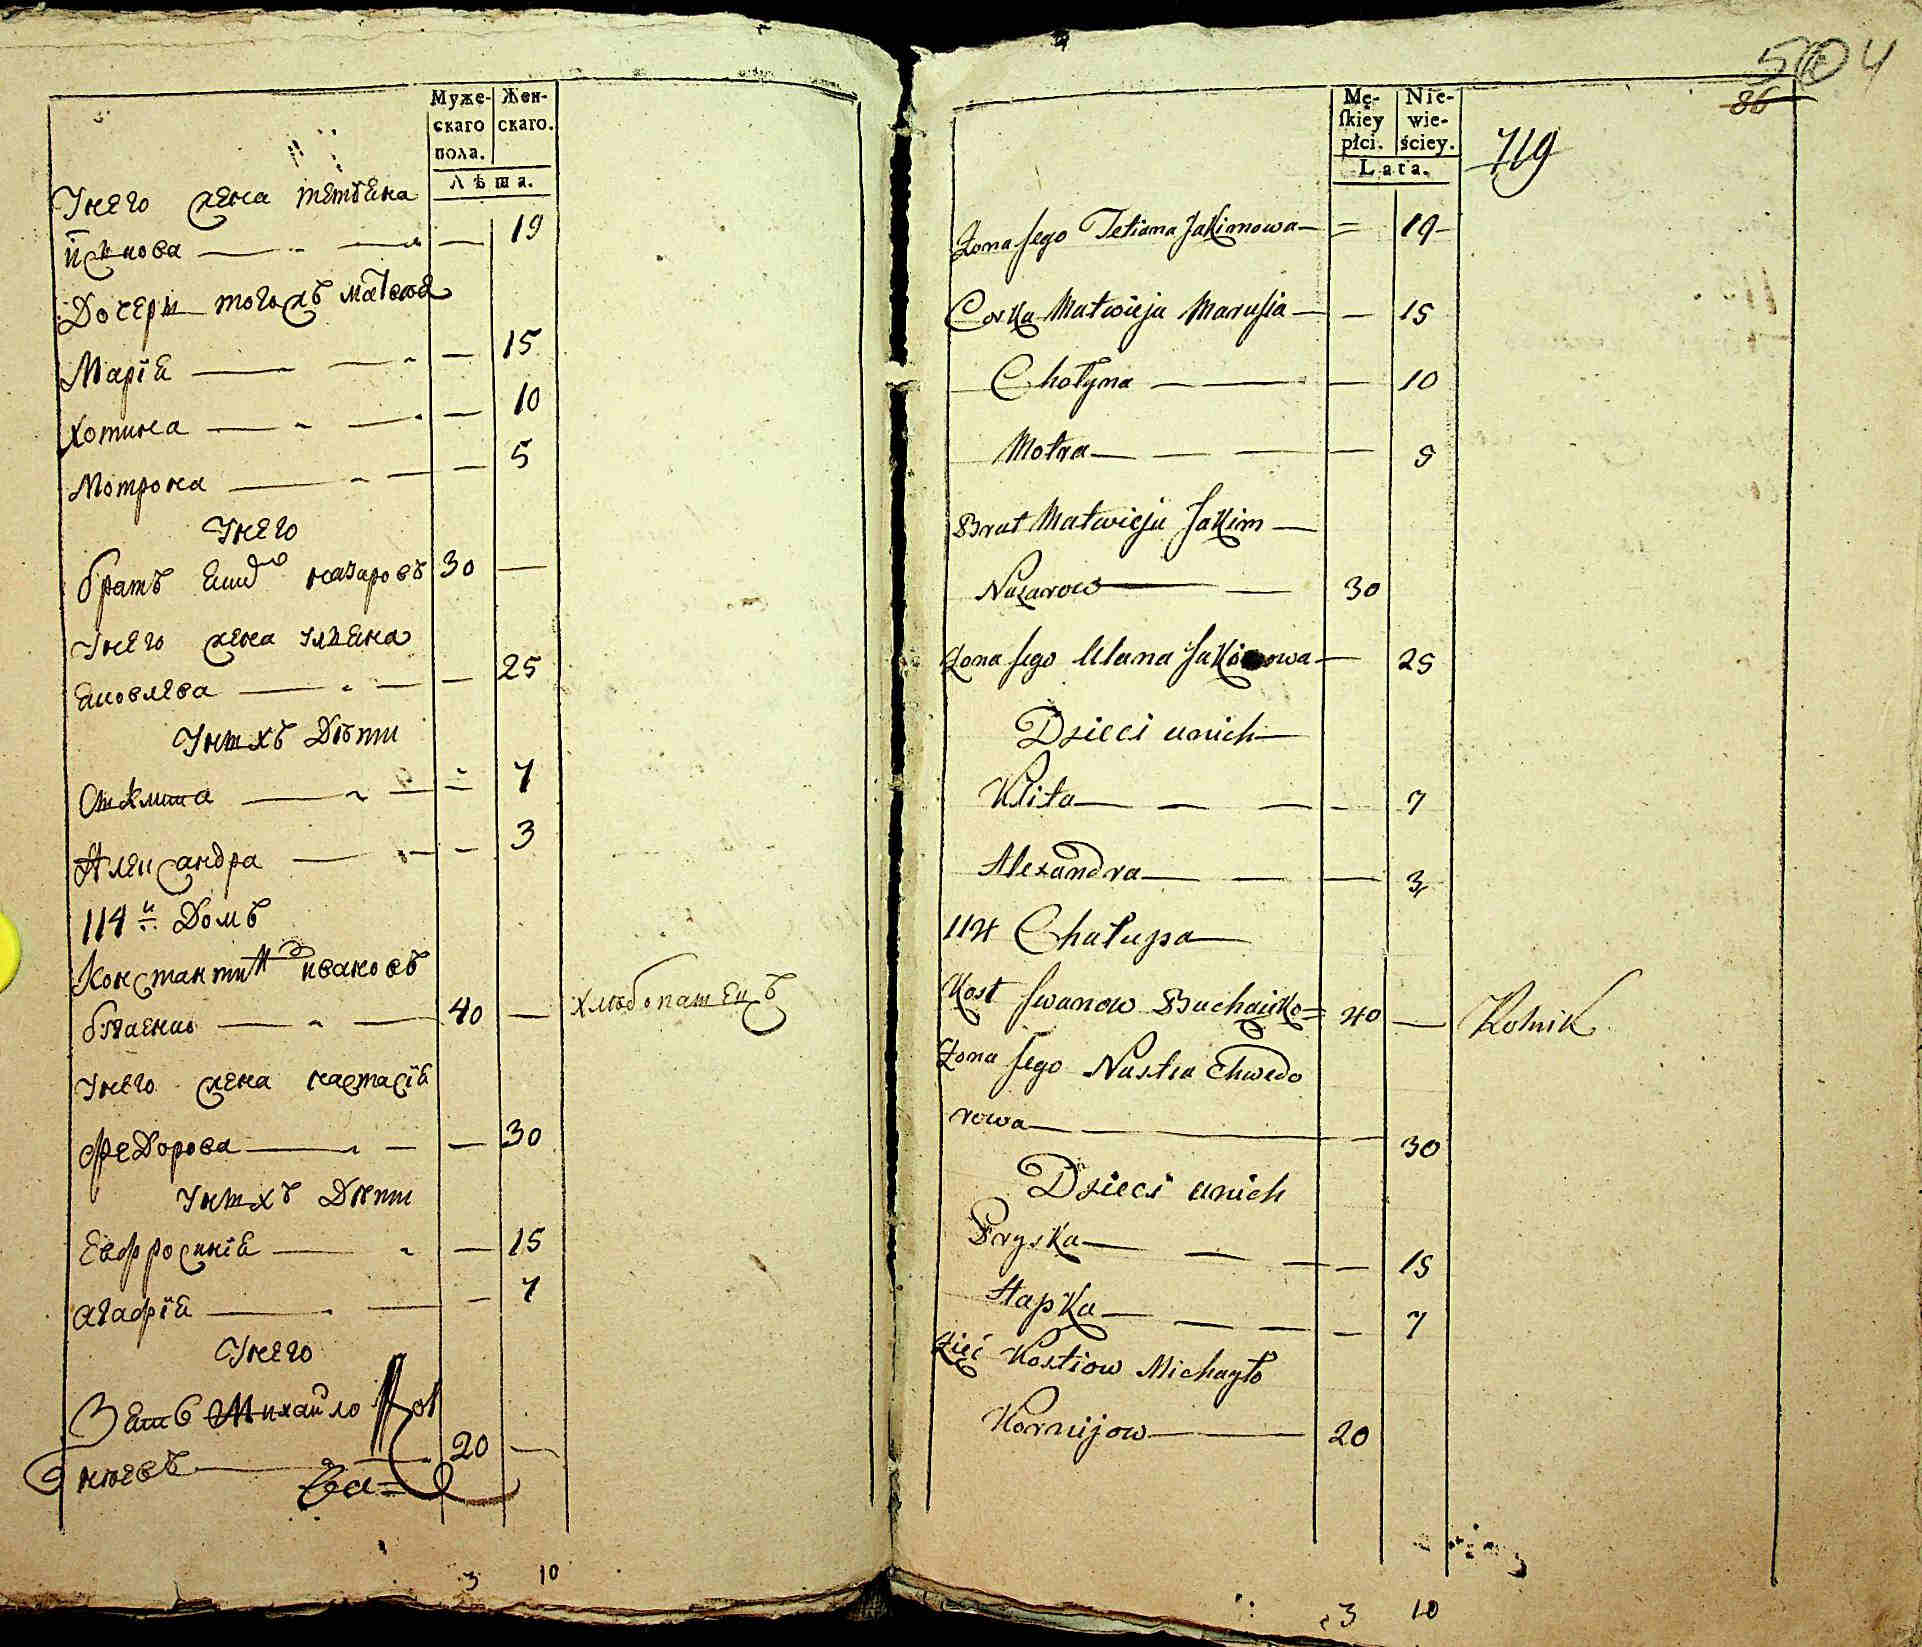 Муже-
скаго
пола.
Жен-
скаго.
Лѣта.
Унего жена татѣяна
19
Дочери тогожъ матвея
Марія 15
Хотина 10
Мотрона 5
Унего
братъ назаровъ 30
Унего жена улияна
25
Унихъ Дѣти
7
Александра 3
114й Домъ
Константин ивановъ
40 хлѣбопашецъ
Унего жена настасія
Федорова 30
Унихъ Дѣти
Евфросинія 15
агафія 7
Унего
Зять Михайло Кор
нѣевъ 20
3 10
504
86
Mę-
skiey
płci.
Nie-
wie-
ściey.
Lata.
119
Zona Jego Tetiana Jakimowa 19
Corka Matwieja Marusia 15
Chotyna 10
Motra 5
Brat Matwieja Jakim
Nazarow 30
Zona Jego Ulana 25
Dzieci unich
Kłita 7
Alexandra 3
114 Chałupa
Kost Jwanow 40 Rolnik
Zona Jego Nastia Chwedo
rowa 30
Dzieci unich
Pryska 15
Hapka 7
Zięć Kostiow Michayło
Kornijow 20
3 10